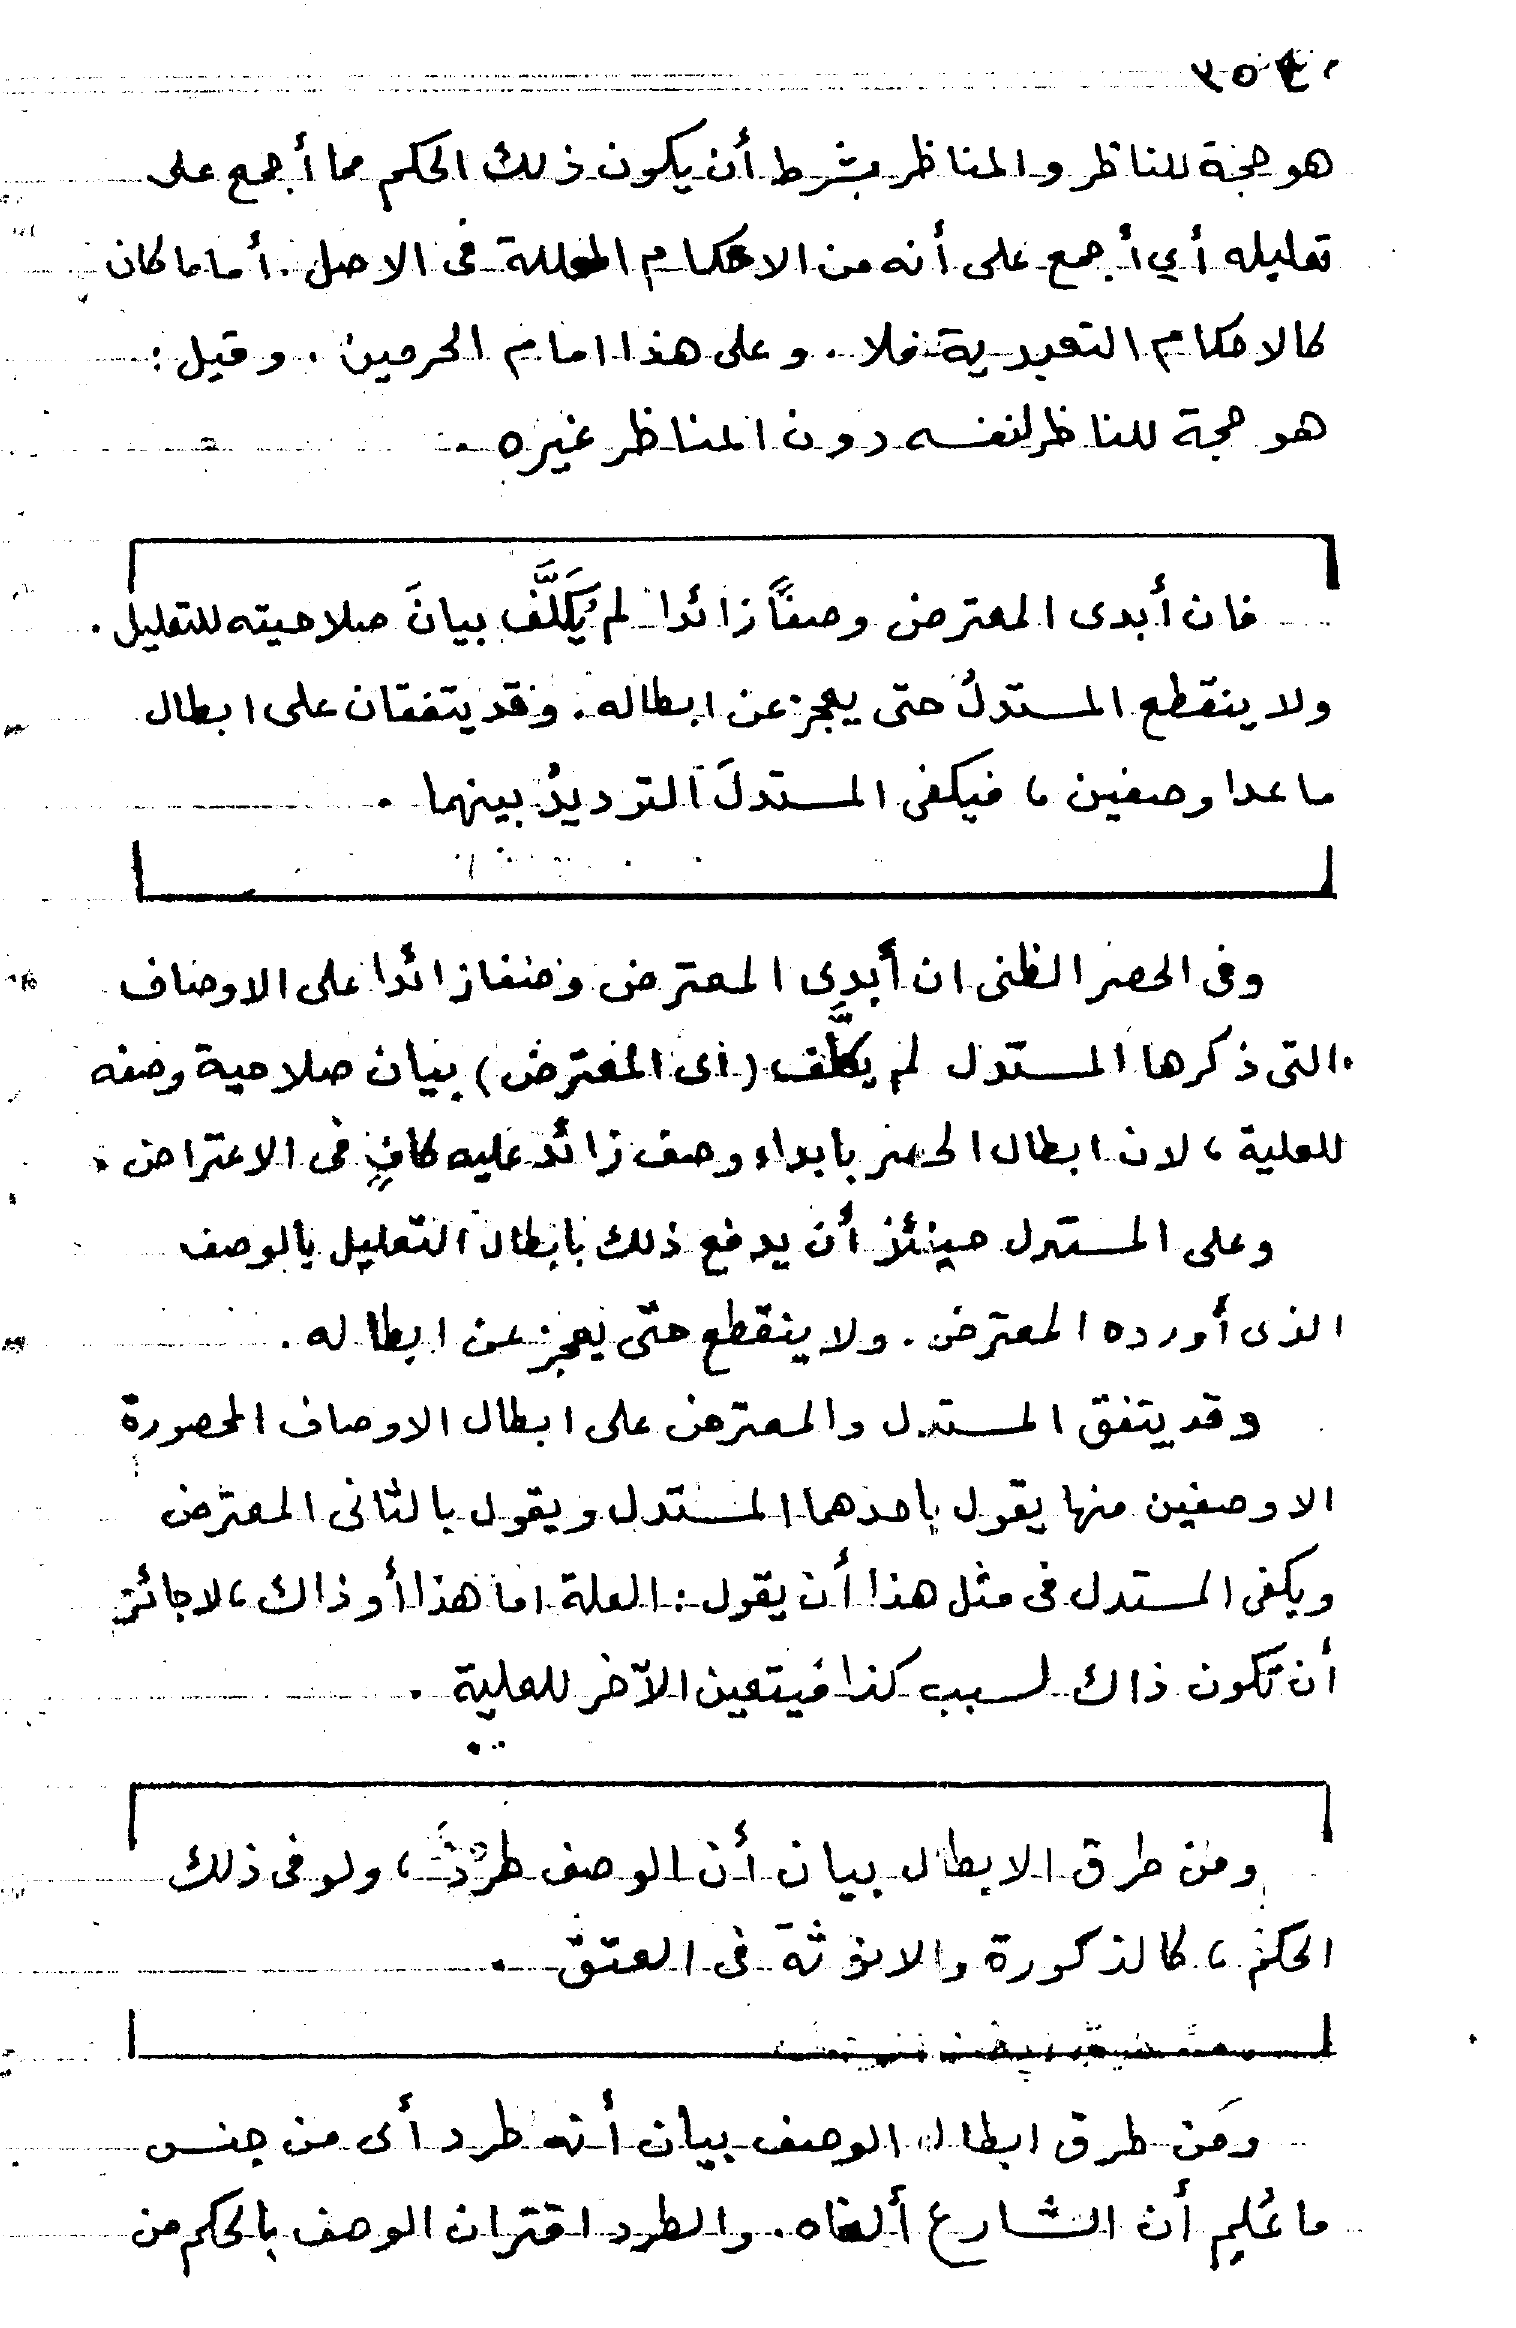 هو حجة للناظر والمناظر بشرط أن يكون ذلك الحكم مما أجمع على
تعليله أي أجمع على أنه من الاحكام المعللة فى الاصل . أما ما كان
كالاحكام التعبدية فلا . وعلى هذا امام الحرمين . وقيل :
هو حجة للناظر لنفسه دون المناظر غيره .
فان أبدى المعترض وصفًا زائدا لم يُكَلَّف بيانَ صلاحيته للتعليل .
ولا ينقطع المستدلُ حتى يعجز عن ابطاله . وقد يتفقان على ابطال
ما عدا وصفين ، فيكفى المستدلَ الترديدُ بينهما .
وفى الحصر الظنى ان أبدى المعترض وصفا زائدا على الاوصاف
التى ذكرها المستدل لم يكلَّف (أى المعترض) بيان صلاحية وصفه
للعلية ، لان ابطال الحصر بابداء وصف زائد عليه كافٍ فى الاعتراض .
وعلى المستدل حينئذ أن يدفع ذلك بابطال التعليل بالوصف
الذى أورده المعترض . ولا ينقطع حتى يعجز عن ابطاله .
وقد يتفق المستدل والمعترض على ابطال الاوصاف المحصورة
الا وصفين منها يقول باحدهما المستدل ويقول بالثانى المعترض
ويكفى المستدل فى مثل هذا أن يقول : العلة اما هذا أو ذاك ، لا جائز
أن تكون ذاك لسبب كذا فيتعين الآخر للعلية .
ومن طرق الابطال بيان أن الوصف طرد ، ولو فى ذلك
الحكم ، كالذكورة والانوثة فى العتق .
ومن طرق ابطال الوصف بيان أنه طرد أى من جنس
ما عُلِم أن الشارع ألغاه . والطرد اقتران الوصف بالحكم من